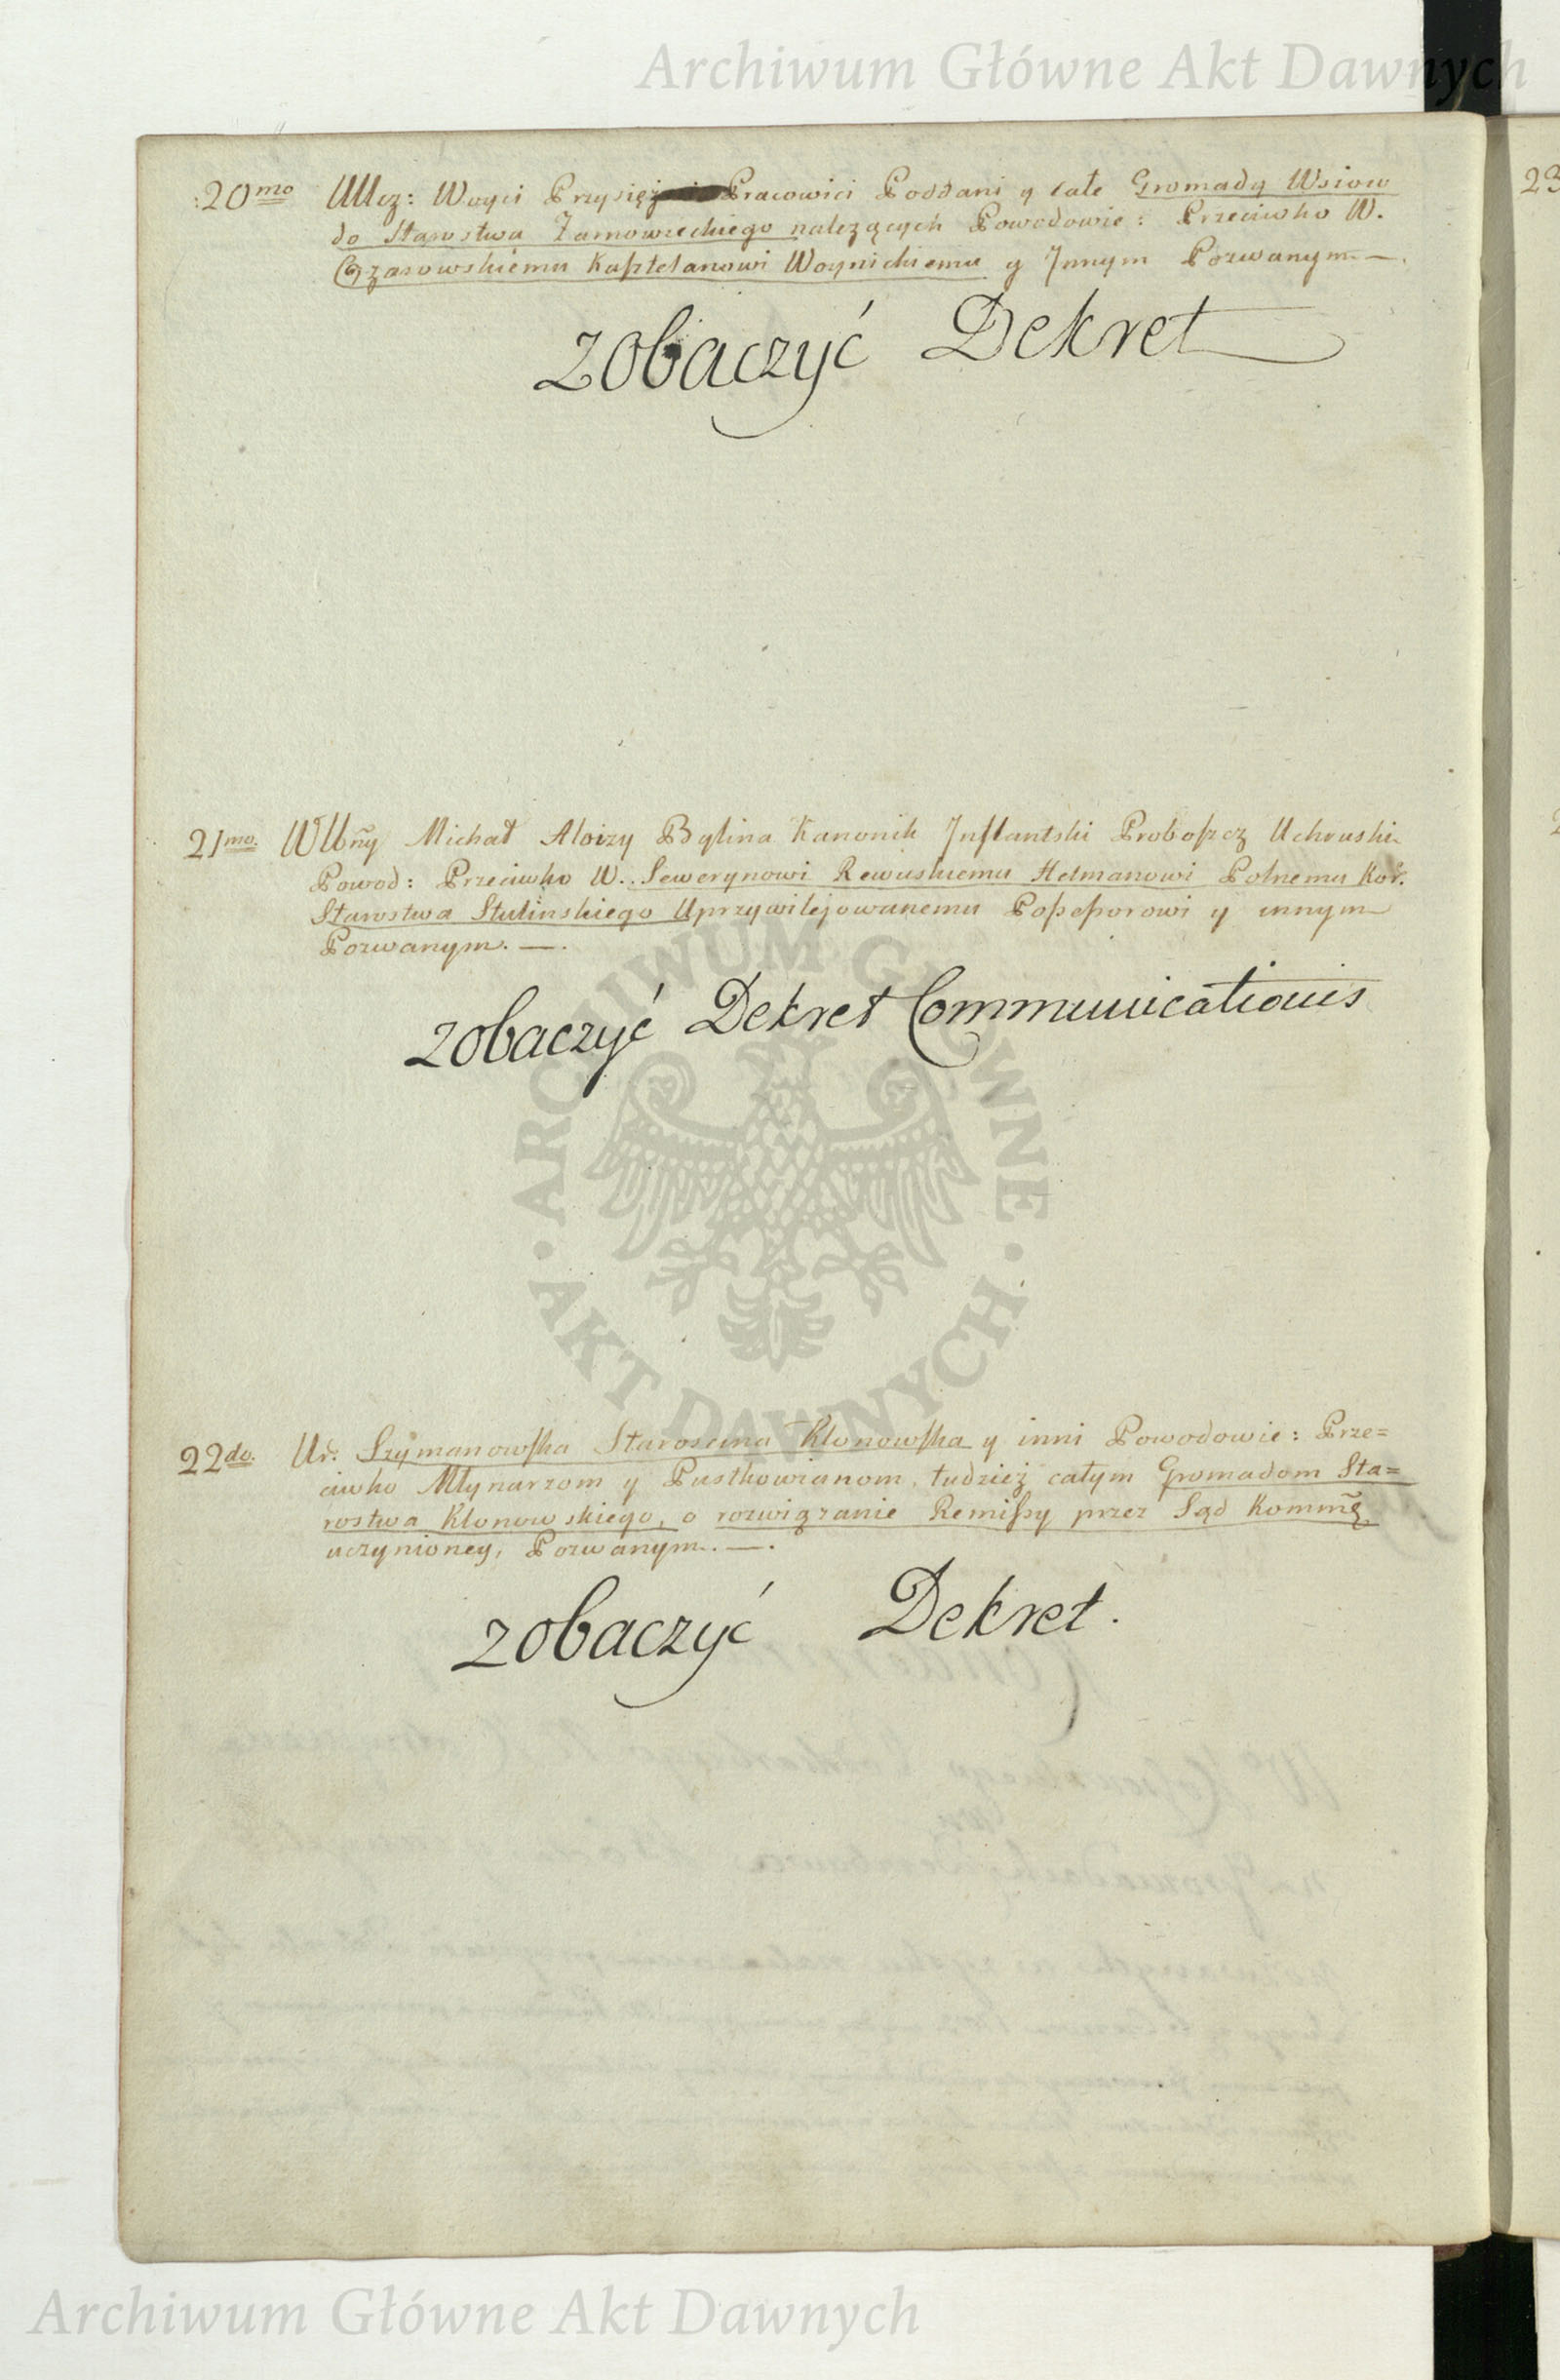 Archiwum Główne Akt Dawnych
20mo UUcz: Woyci Przysięż Pracowici Poddani y całe Gromady Wsiow
do Starostwa Zarnowieckiego należących Powodowie: Przeciwko W.
Ożarowskiemu Kasztelanowi Woynickiemu y Innym Pozwanym —.
zobaczyć Dekret
21mo. WUbny Michał Aloizy Bylina Kanonik Inflantski Proboszcz Uchruski
Powod: Przeciwko W. Sewerynowi Rewuskiemu Hetmanowi Polnemu Kor.
Starostwa Stulińskiego Uprzywilejowanemu Possessorowi y innym
Pozwanym. —.
zobaczyć Dekret Communicationis
22do. Ur: Szymanowska Starościna Klonowska y inni Powodowie: Prze=
ciwko Młynarzom y Pustkowianom, tudzież całym Gromadom Sta=
rostwa Klonowskiego, o rozwiązanie Remissy przez Sąd Kommą
uczynioney, Pozwanym. —.
zobaczyć Dekret.
ARCHIWUM GŁÓWNE · AKT DAWNYCH ·
23
Archiwum Główne Akt Dawnych